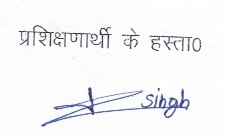 प्रशिक्षणार्थी के हस्ता०
singh